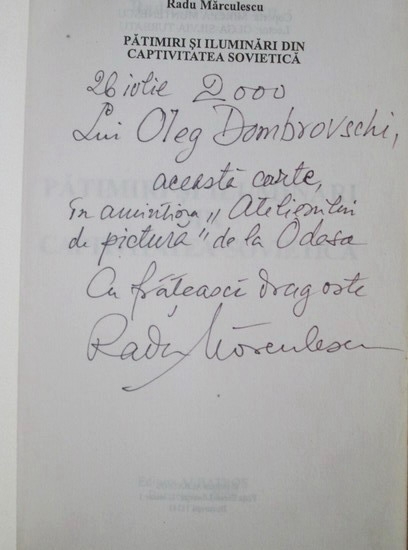 Radu Mărculescu
PĂTIMIRI ȘI ILUMINĂRI DIN
CAPTIVITATEA SOVIETICĂ
26 iulie 2000
Lui Oleg Dombrovschi,
această carte,
în amintirea „Atelierului
de pictură" de la Odesa
Cu frățească dragoste
Radu Mărculescu